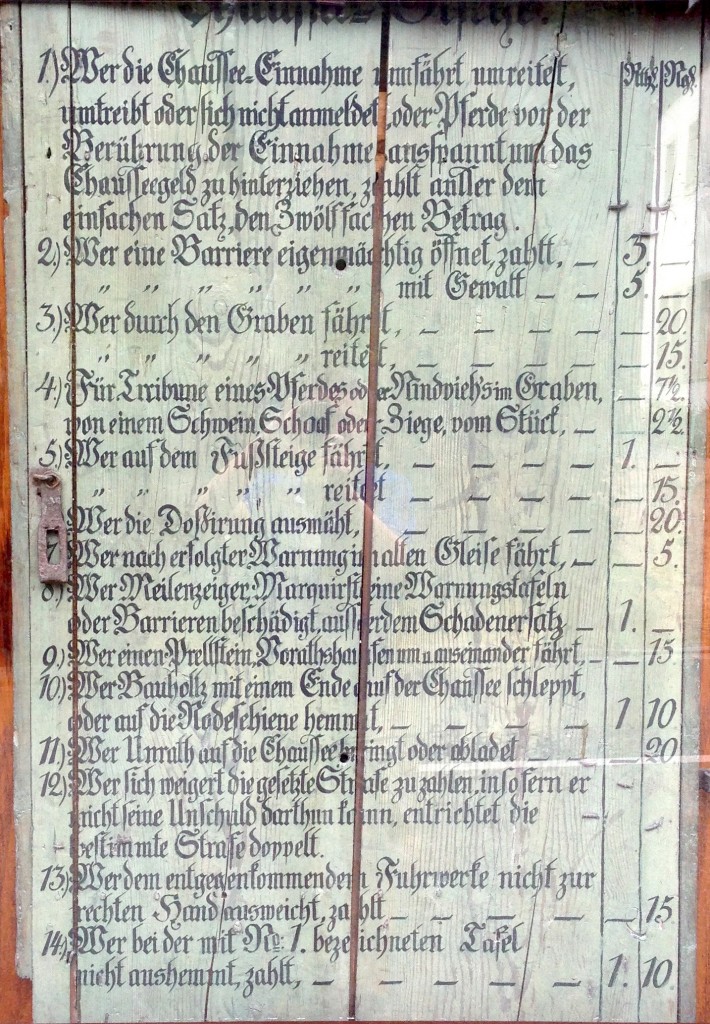 Chaussee-Gesetze.
Rthl. Ngl.
1.) Wer die Chaussee-Einnahme umfährt umreitet,
umtreibt oder sich nicht anmeldet, oder Pferde vor der
Berührung der Einnahme ausspannt um das
Chausseegeld zu hinterziehen, zahlt ausser dem
einfachen Satz, den Zwölffachen Betrag.
2.) Wer eine Barriere eigenmächtig öffnet, zahlt, — 3. —
" " " " " " mit Gewalt — — 5. —
3.) Wer durch den Graben fährt, — — — — — 20.
" " " " " reitet, — — — — — 15.
4.) Für Tribune eines Pferdes oder Rindvieh's im Graben, — 7½.
von einem Schwein, Schaaf oder Ziege, vom Stück, — — 2½.
5.) Wer auf dem Fußsteige fährt, — — — — 1. —
" " " " " reitet — — — — — 15.
Wer die Doßirung ausmäht, — — — — — 20.
7 Wer nach erfolgter Warnung in alten Gleise fährt, — — 5.
8.) Wer Meilenzeiger, Marquirsteine Warnungstafeln
oder Barrieren beschädigt, ausserdem Schadenersatz — 1. —
9.) Wer einen Prellstein, Vorathshaufen um u. auseinander fährt, — — 15.
10.) Wer Bauholtz mit einem Ende auf der Chaussee schleppt,
oder auf die Rodeschiene hemmt, — — — — 1 10
11.) Wer Unrath auf die Chaussee bringt oder abladet — — 20
12.) Wer sich weigert die gesetzte Strafe zu zahlen, insofern er
nicht seine Unschuld darthun kann, entrichtet die — —
bestimmte Strafe doppelt.
13.) Wer dem entgegenkommendem Fuhrwerke nicht zur
rechten Hand ausweicht, zahlt — — — — — 15.
14.) Wer bei der mit No: 1. bezeichneten Tafel
nicht aushemmt, zahlt, — — — — — 1. 10.